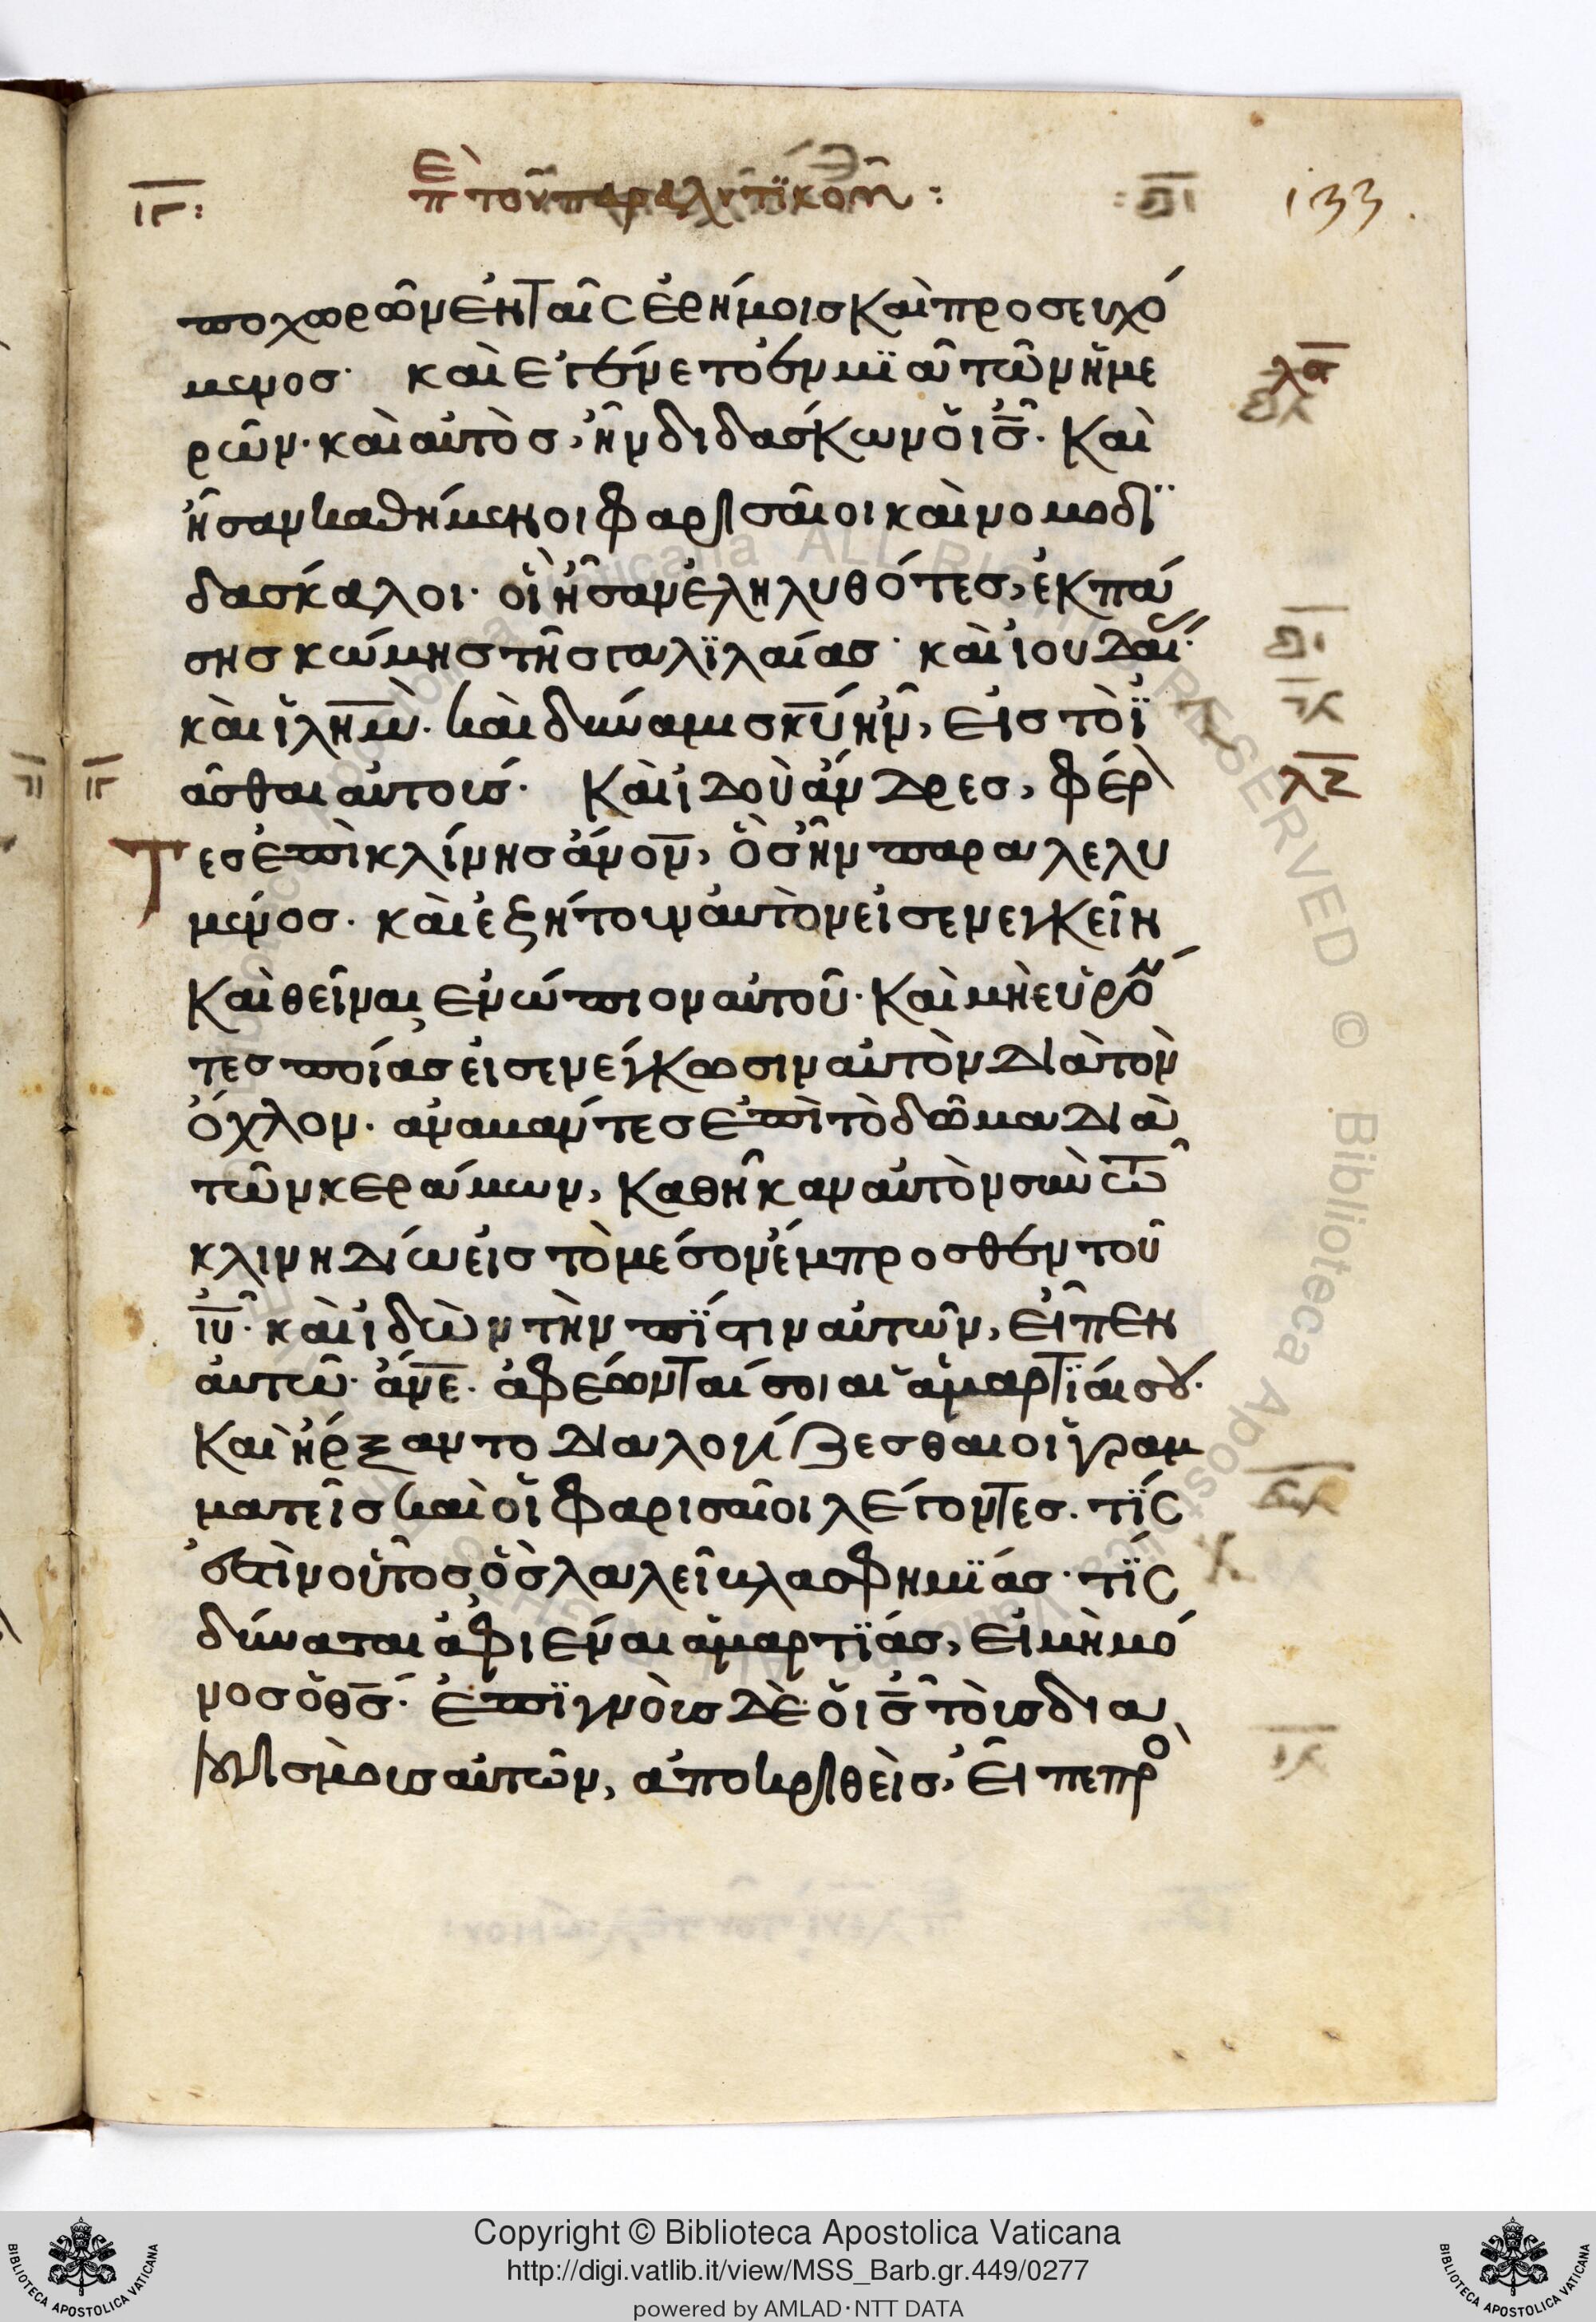 ιγ: πε τοῦ παραλυτϊκοῦ: 133.
ποχωρῶν ἐν ταῖς ἐρήμοις καὶ προσευχό
μενος· καὶ ἐγένετο ἐν μϊᾶ τῶν ἡμε
ρῶν· καὶ αὐτὸς, ἦν διδάσκων ὁ ις̅· καὶ
ἦσαν καθήμενοι φαρισαῖοι καὶ νομοδϊ
δασκάλοι· οἳ ἦσαν ἐληλυθότες, ἐκ πά
σης κώμης τῆς γαλϊλαίας· καὶ ἰουδαί·
καὶ ἰλημ̅· καὶ δύναμις κ̅υ̅ ἦν, εἰς τὸ ἰ
ᾶσθαι αὐτούς· καὶ ἰδοὺ ἄνδρες, φέρ
λα
λζ
τες ἐπὶ κλίνης ἄνον̅, ὃς ἦν παραλελυ
μένος· καὶ ἐζήτουν αὐτὸν εἰσενεγκεῖν
καὶ θεῖναι ἐνώπιον αὐτοῦ· καὶ μὴ εὑρό
τες ποίας εἰσενέγκωσιν αὐτὸν διὰ τὸν
ὄχλον· ἀναβάντες ἐπὶ τὸ δῶμα διὰ
τῶν κεράμων, καθῆκαν αὐτὸν σὺν τῶ
κλινηδίω εἰς τὸ μέσον ἔμπροσθεν τοῦ
ιυ̅· καὶ ἰδὼν τὴν πϊστιν αὐτῶν, εἶπεν
αὐτῶ· ἄνε̅· ἀφέωνταί σοι αἱ ἁμαρτϊαι σου·
καὶ ἤρξαντο διαλογίζεσθαι οἱ γραμ
ματεῖς καὶ οἱ φαρισαῖοι λέγοντες· τϊς
ἐστὶν οὗτος ὃς λαλεῖ βλασφημϊας· τϊς
δύναται ἀφιέναι ἁμαρτϊας, εἰ μὴ μό
νος ὁ θς̅· ἐπϊγνοὺς δὲ ὁ ις̅ τοὺς δια
λογισμοὺς αὐτῶν, ἀποκριθεὶς, εἶπε πρὸ
Copyright © Biblioteca Apostolica Vaticana
http://digi.vatlib.it/view/MSS_Barb.gr.449/0277
powered by AMLAD·NTT DATA
BIBLIOTECA APOSTOLICA VATICANA
BIBLIOTECA APOSTOLICA VATICANA